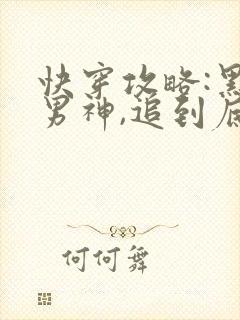 快穿攻略:黑
男神,追到底
何何舞